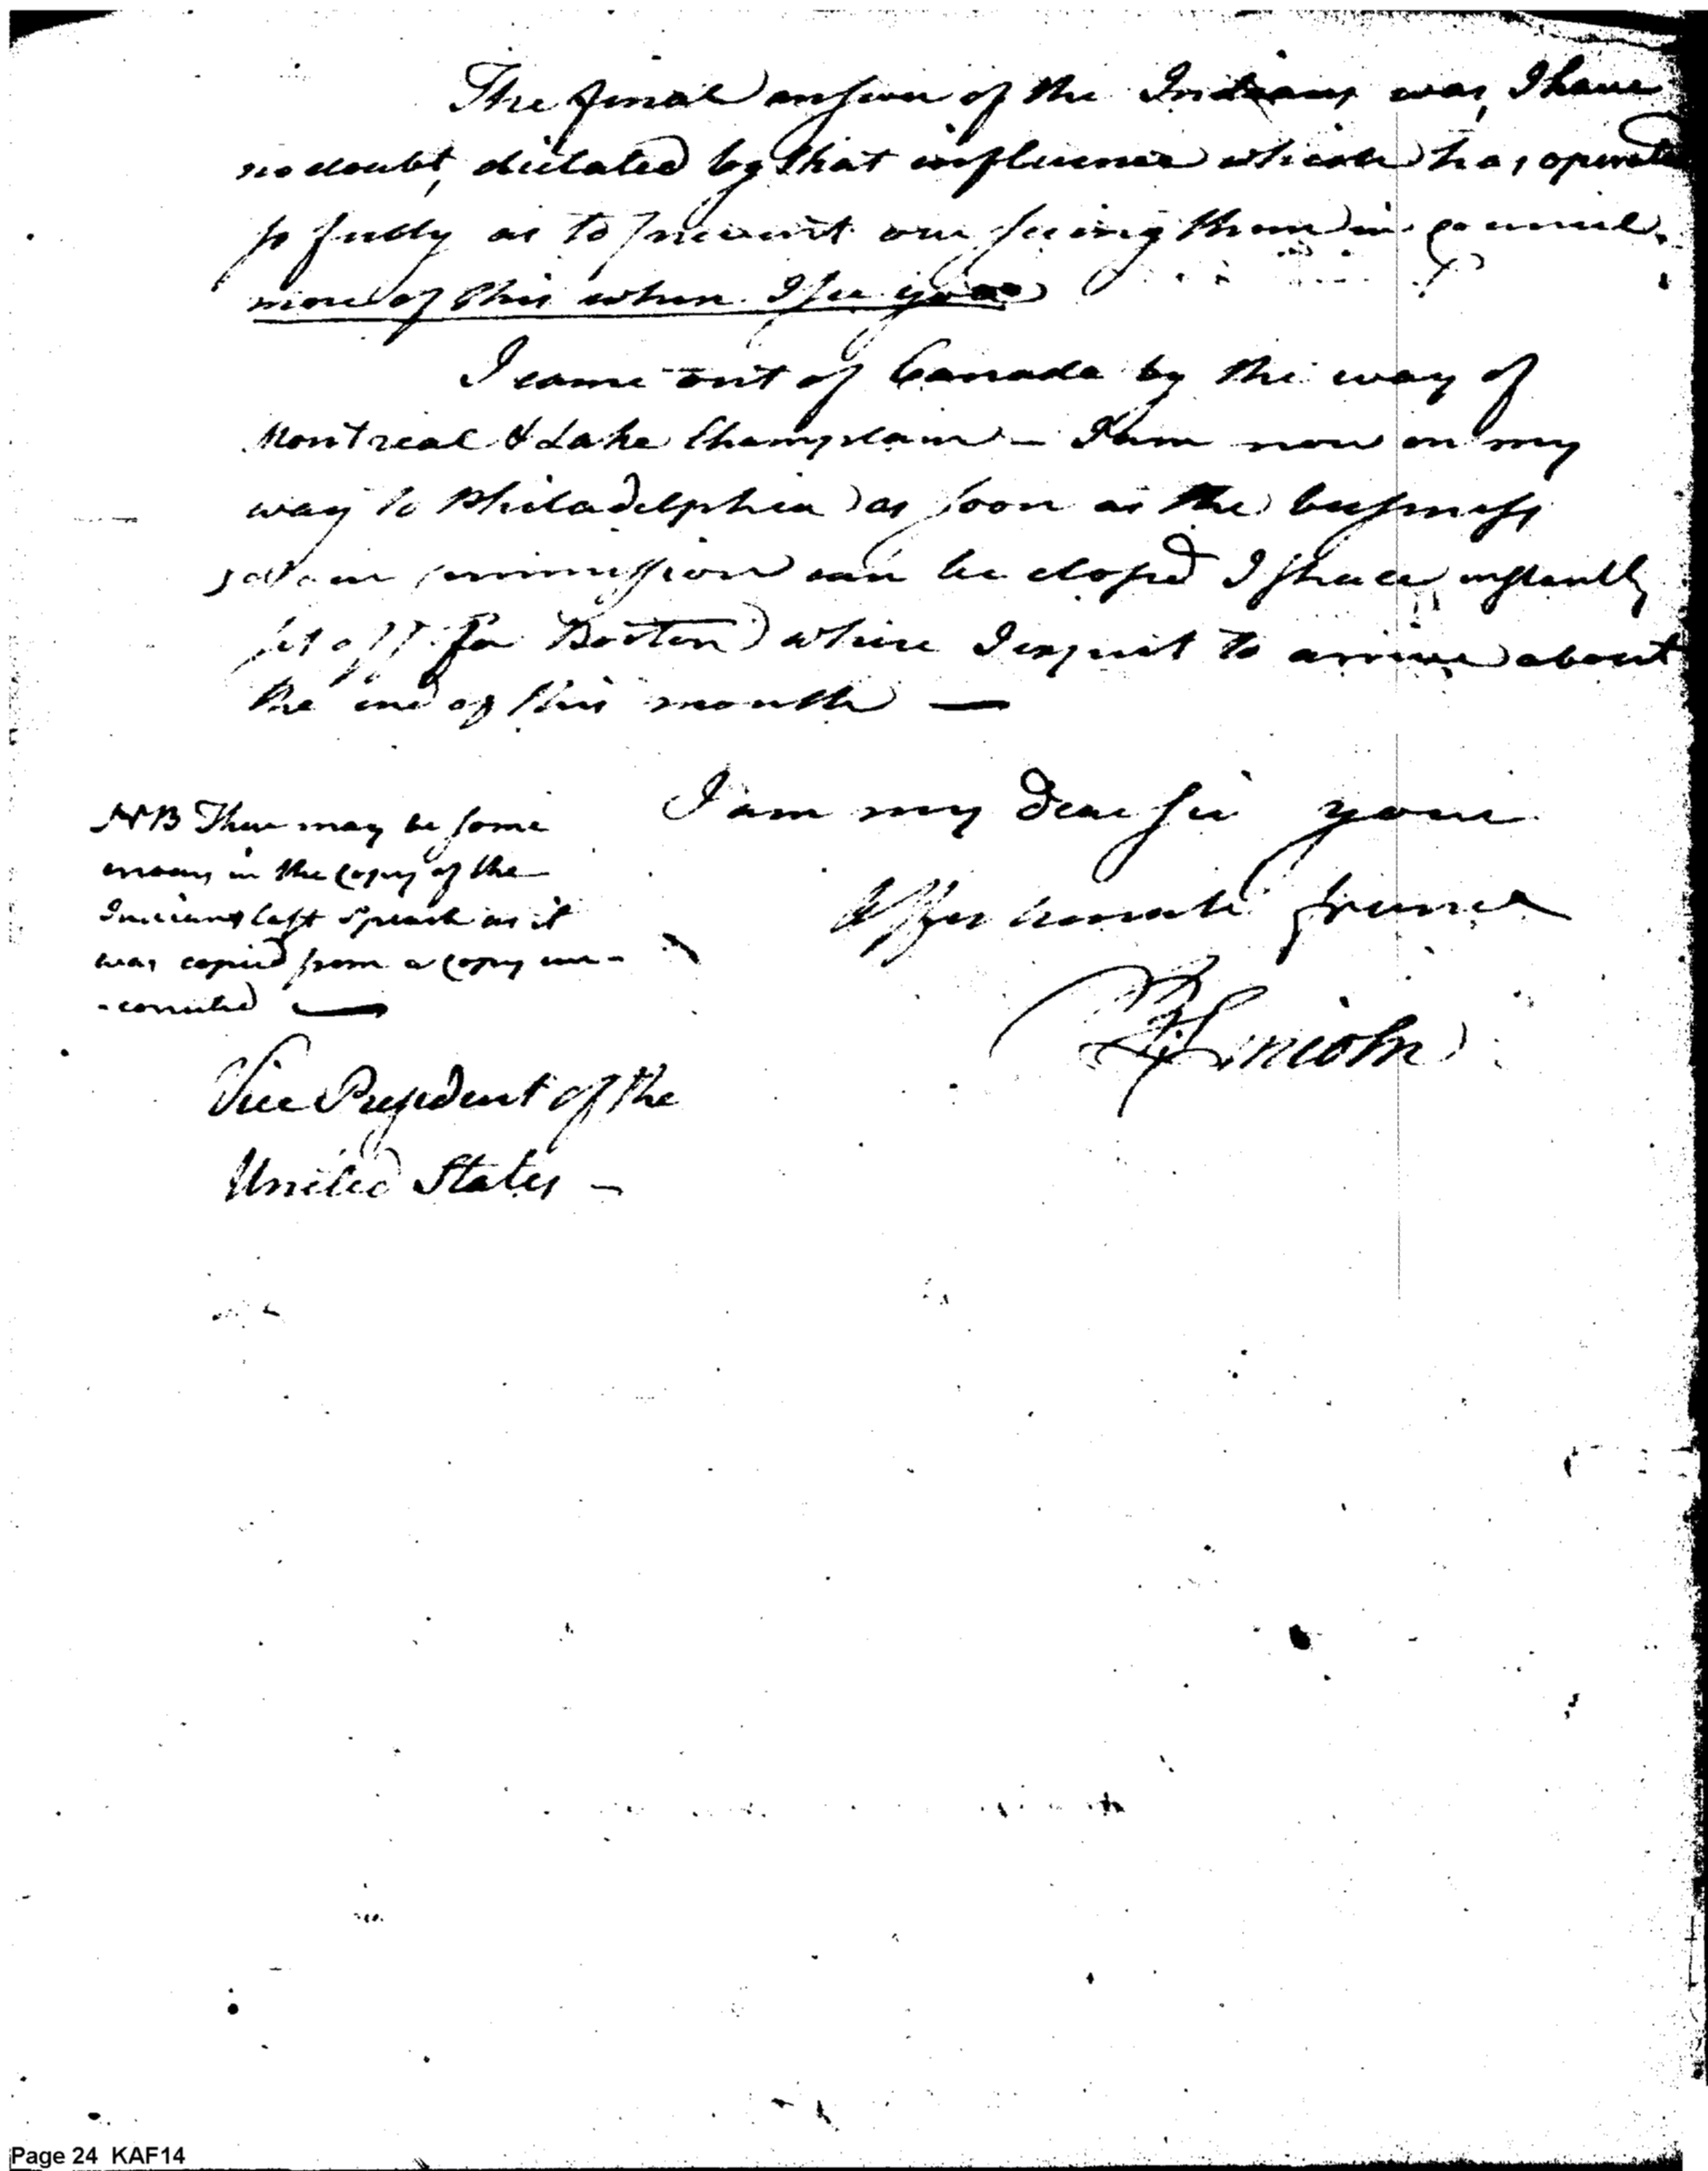 The final answer of the Indians was, I have
no doubt, dictated by that influence which has operated
so fully as to prevent our seeing them in council.
more of this when I see you
I came out of Canada by the way of
Montreal & Lake Champlain – I am now on my
way to Philadelphia as soon as the business
our commission can be closed I shall instantly
set off for Boston where I expect to arrive about
the end of this month —
I am my dear sir your
affectionate friend
B Lincoln
NB There may be some
errours in the copy of the
Indians last speech as it
was copied from a copy un-
-corrected —
Vice President of the
United States –
Page 24 KAF14